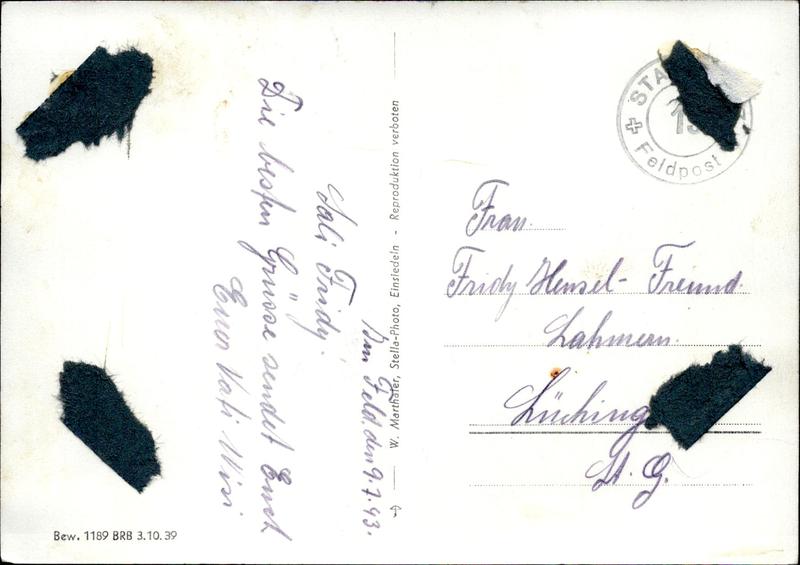 Im Feld, den 9.7.43.
Sali Fridy.
Die besten Grüsse sendet Euch
Euer Vati
W. Marthaler, Stella-Photo, Einsiedeln - Reproduktion verboten
Bew. 1189 BRB 3.10.39
STA
Feldpost
Frau.
Fridy Hensel- Freund.
Lüching
St. G.